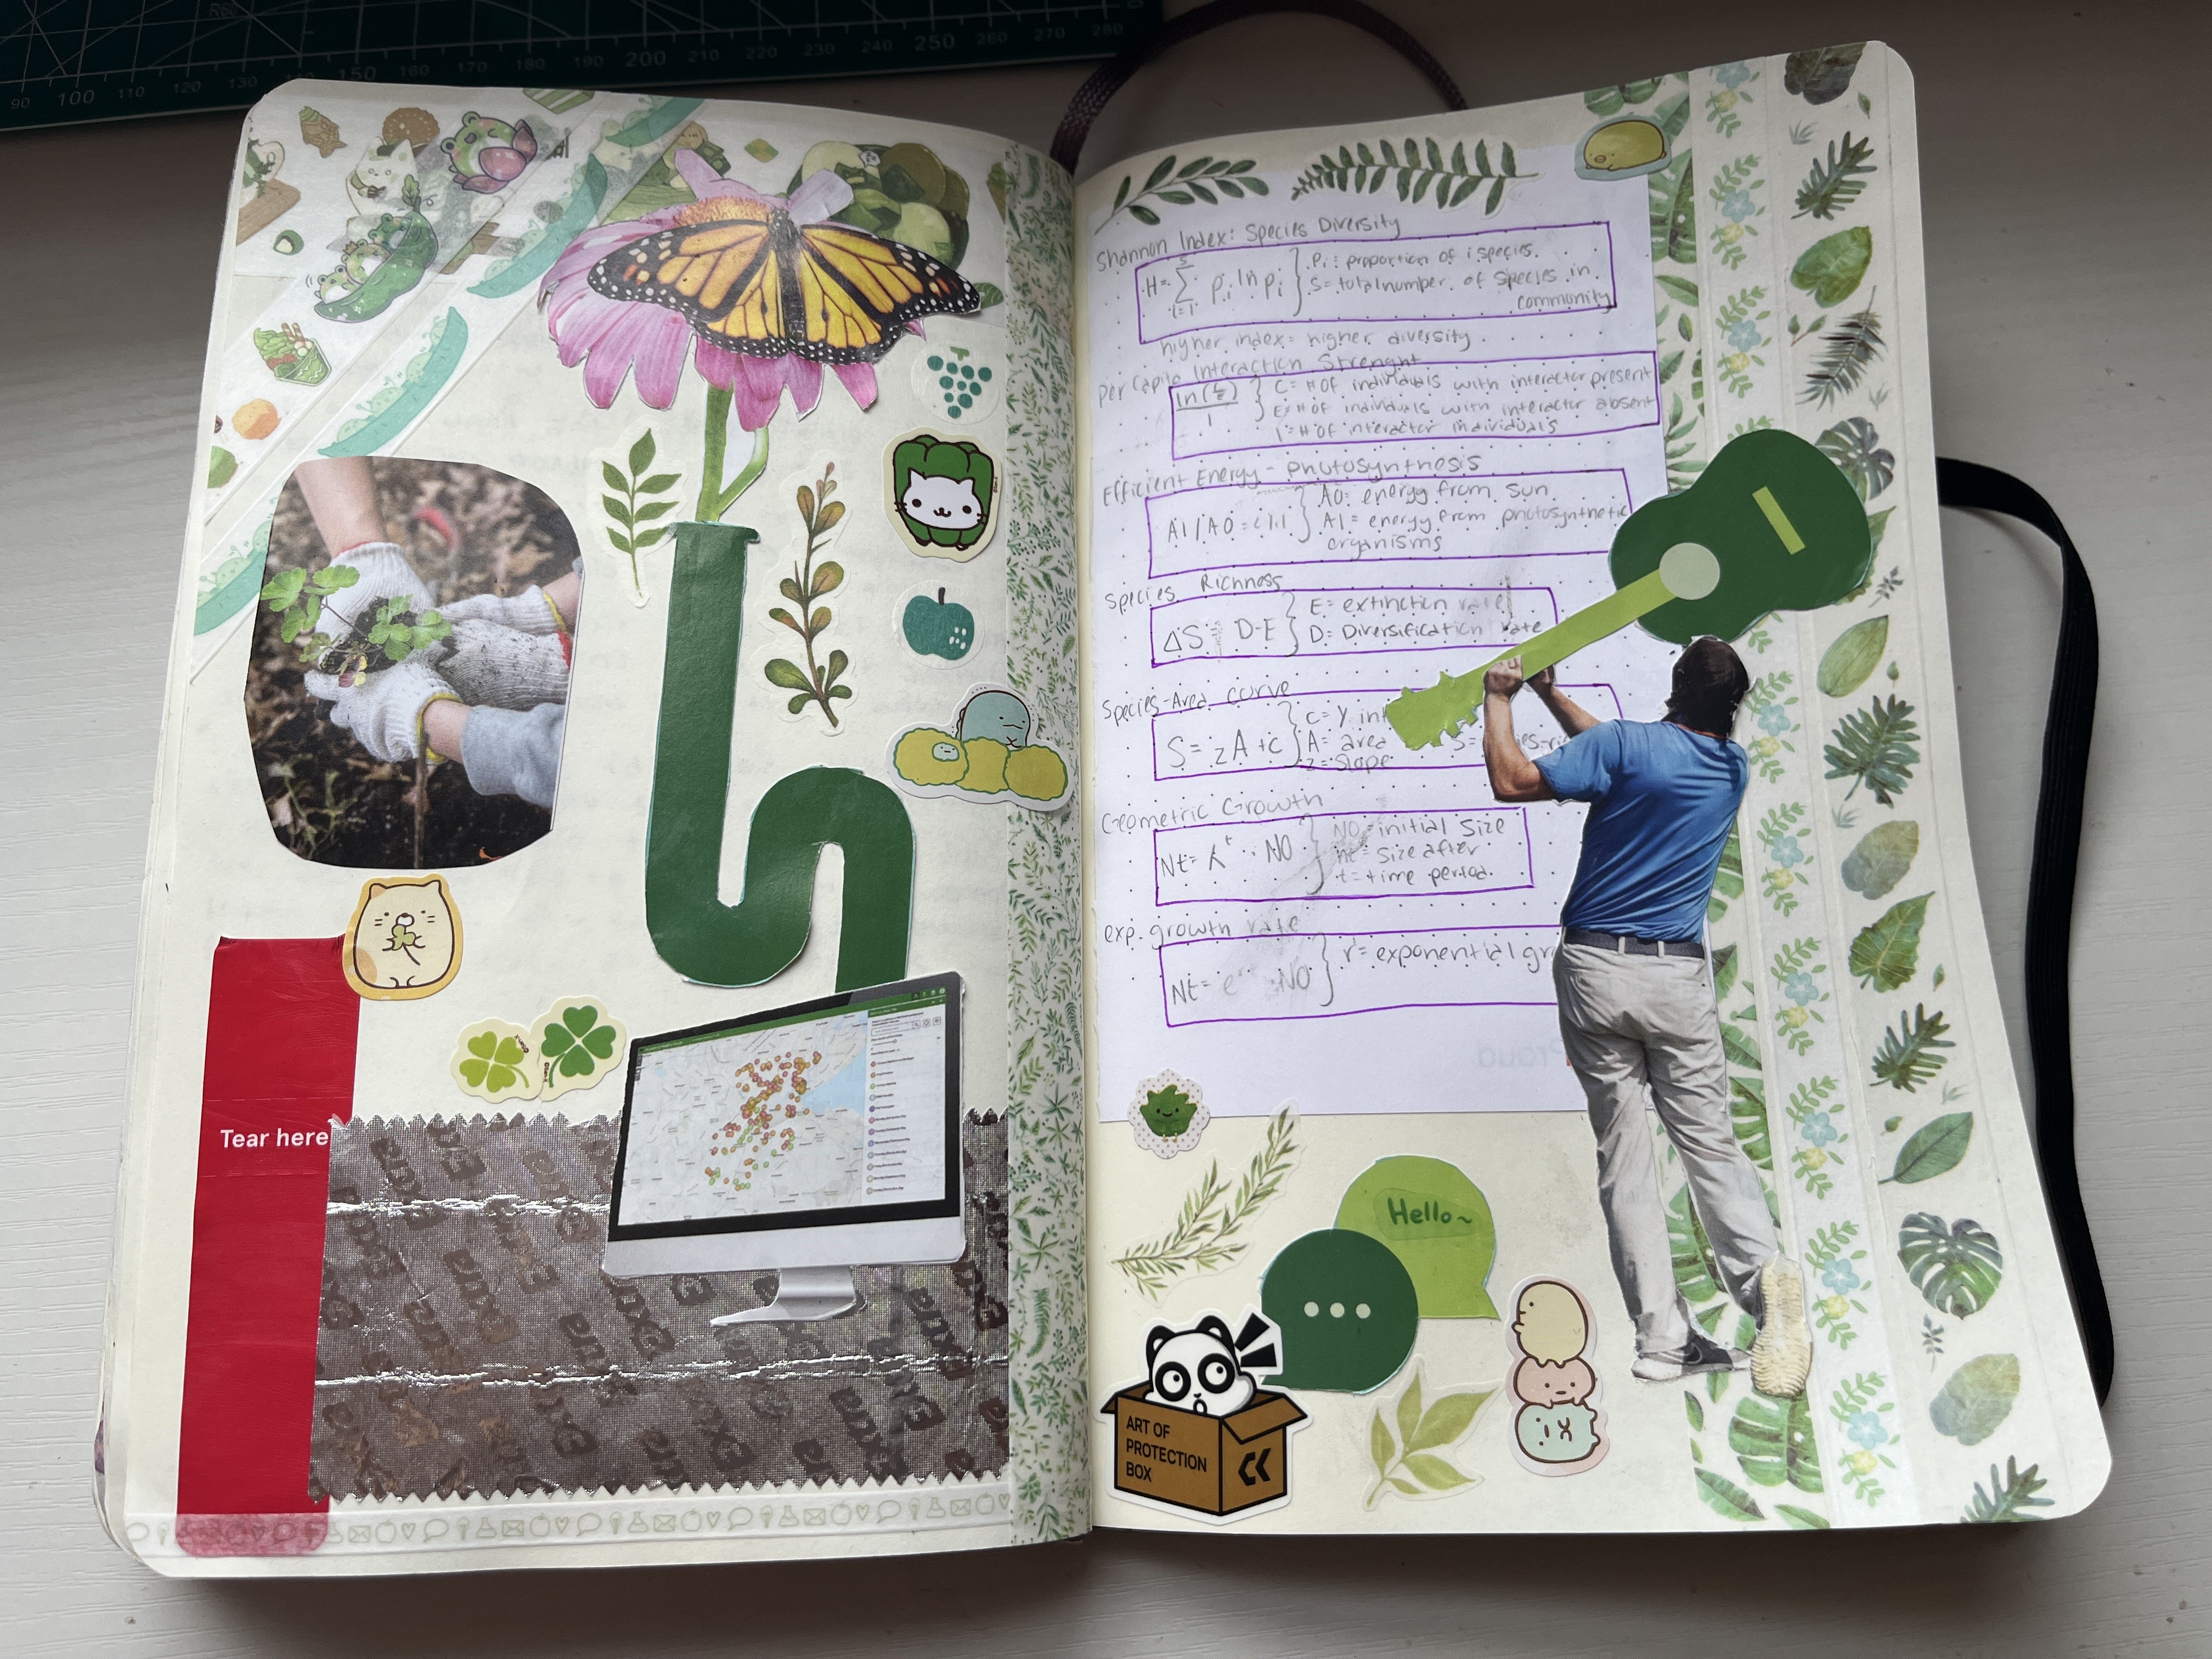 90 100 110 120 130 150 160 170 180 190 200 210 220 230 240 250 260 270 280
Tear here
Extra Extra Extra Extra
Shannon Index: Species Diversity
H= S Σ i=1 pi ln pi } Pi = proportion of i species.
S= total number of species in
community
higher index= higher diversity
per Capita Interaction Strenght
ln(C/E)/I } C= # of individuals with interactor present
E= # of individuals with interactor absent
I= # of interactor individuals
Efficient Energy - photosynthesis
A1/A0 = } A0= energy from sun
A1= energy from photosynthetic
organisms
Species Richness
ΔS= D-E } E= extinction rate
D= Diversification rate
Species-Area curve
S= zA +c } c= Y int
A= area S=
z= slope
Geometric Growth
Nt= λ^t · N0 } N0= initial size
nt= size after
t= time period.
exp. growth rate
Nt= e · N0 } r= exponential gr
Proud
Hello~
ART OF
PROTECTION
BOX